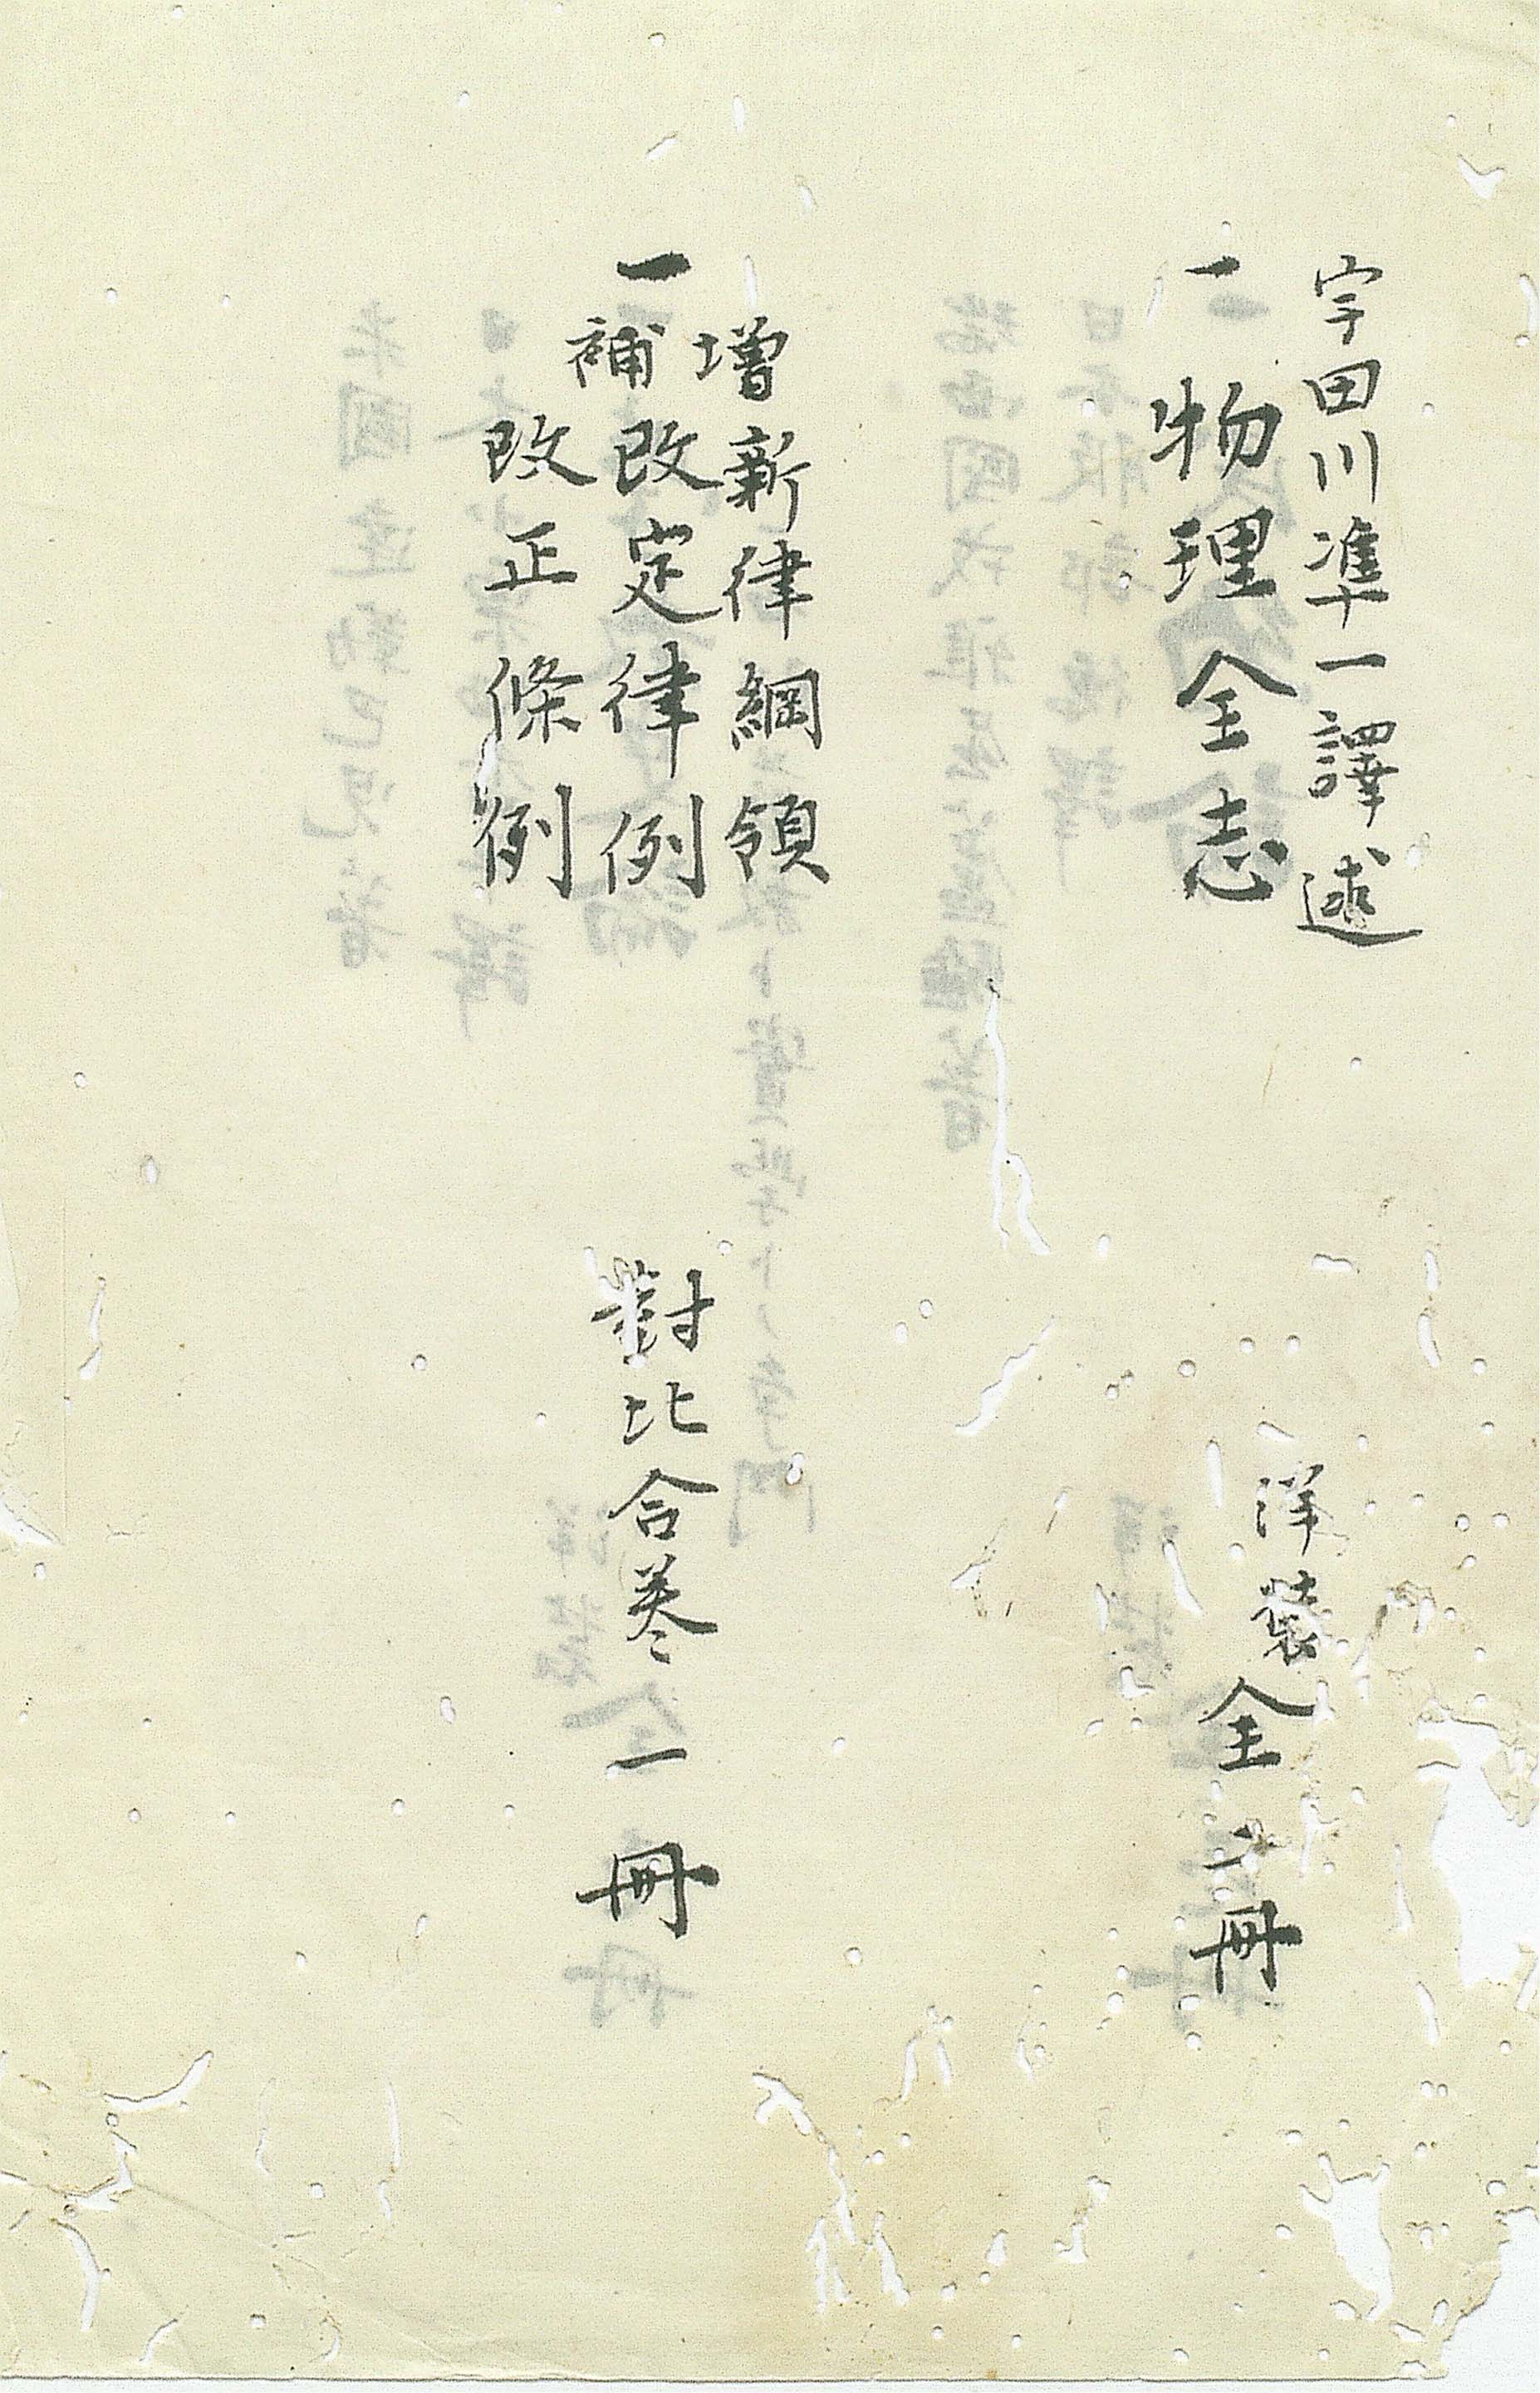 宇田川凖一譯述
一物理全志
洋裝全 冊
一増補
新律綱領
改定律例
改正條例
對比合巻一冊